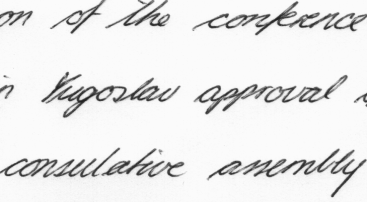 on of the conference
Yugoslav approval
consulative assembly